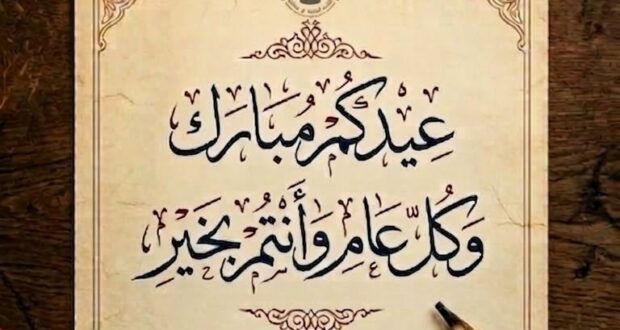 عِيْدُكُمْ مُبَارَك
وَكُلّ عَامٍ وَأَنْتُمْ بِخَيْرٍ